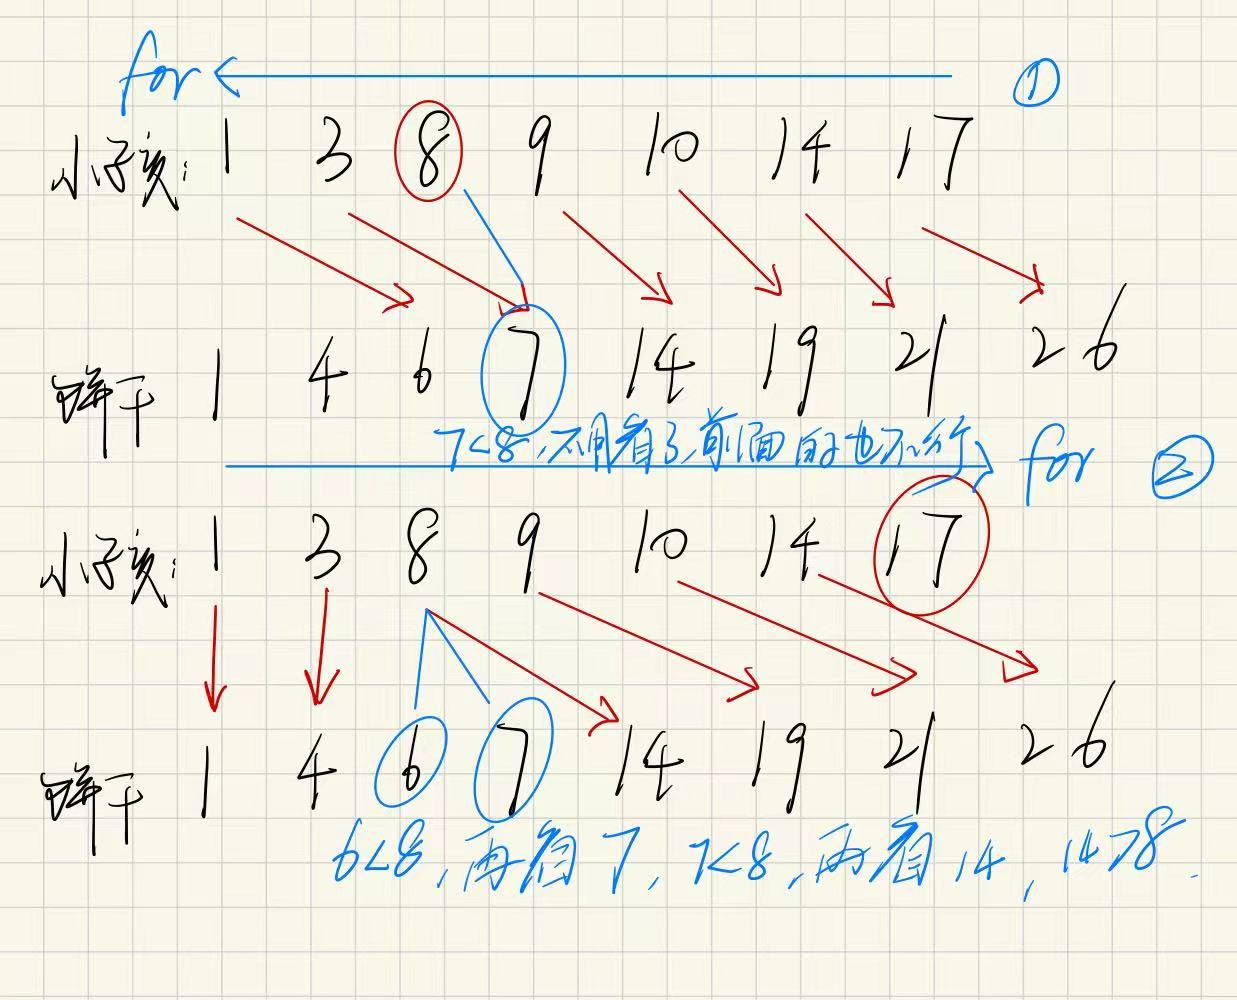 for ①
小孩: 1 3 8 9 10 14 17
饼干 1 4 6 7 14 19 21 26
7<8,不用看了,前面的也不行
for ②
小孩: 1 3 8 9 10 14 17
饼干 1 4 6 7 14 19 21 26
6<8,再看7,7<8,再看14,14>8.